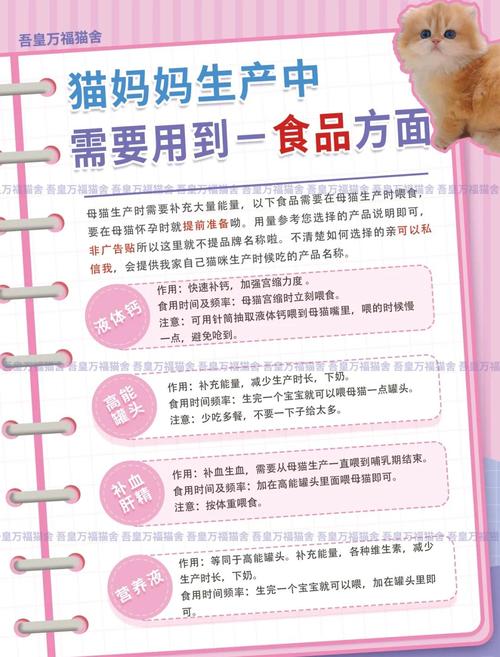 吾皇万福猫舍
猫妈妈生产中
需要用到－食品方面
吾皇万福猫舍 吾皇万福猫舍 吾皇万福猫舍 吾皇万福猫舍 吾皇万福猫舍 吾皇万福猫舍
母猫生产时需要补充大量能量，以下食品需要在母猫生产时喂食，
要在母猫怀孕时就提前准备呦。用量参考您选择的产品说明即可，
非广告贴所以这里就不提品牌名称啦。不清楚如何选择的亲可以私
信我，会提供我家自己猫咪生产时候吃的产品名称。
液体钙
作用：快速补钙，加强宫缩力度 。
食用时间及频率：母猫宫缩时立刻喂食。
注意：可用针筒抽取液体钙喂到母猫嘴里，喂的时候慢
一点，避免呛到。
吾皇万福猫舍 吾皇万福猫舍 吾皇万福猫舍 吾皇万福猫舍 吾皇万福猫舍 吾皇万福猫舍
高能
罐头
作用：补充能量，减少生产时长，下奶。
食用时间频率：生完一个宝宝就可以喂母猫一点罐头。
注意：少吃多餐，不要一下子给太多。
补血
肝精
作用：补血生血，需要从母猫生产一直喂到哺乳期结束。
食用时间及频率：加在高能罐头里面喂母猫即可。
注意：按体重喂食。
吾皇万福猫舍 吾皇万福猫舍 吾皇万福猫舍 吾皇万福猫舍 吾皇万福猫舍 吾皇万福猫舍
营养液
作用：等同于高能罐头。补充能量，各种维生素，减少
生产时长，下奶。
食用时间频率：生完一个宝宝就可以喂，加在罐头里即
可。